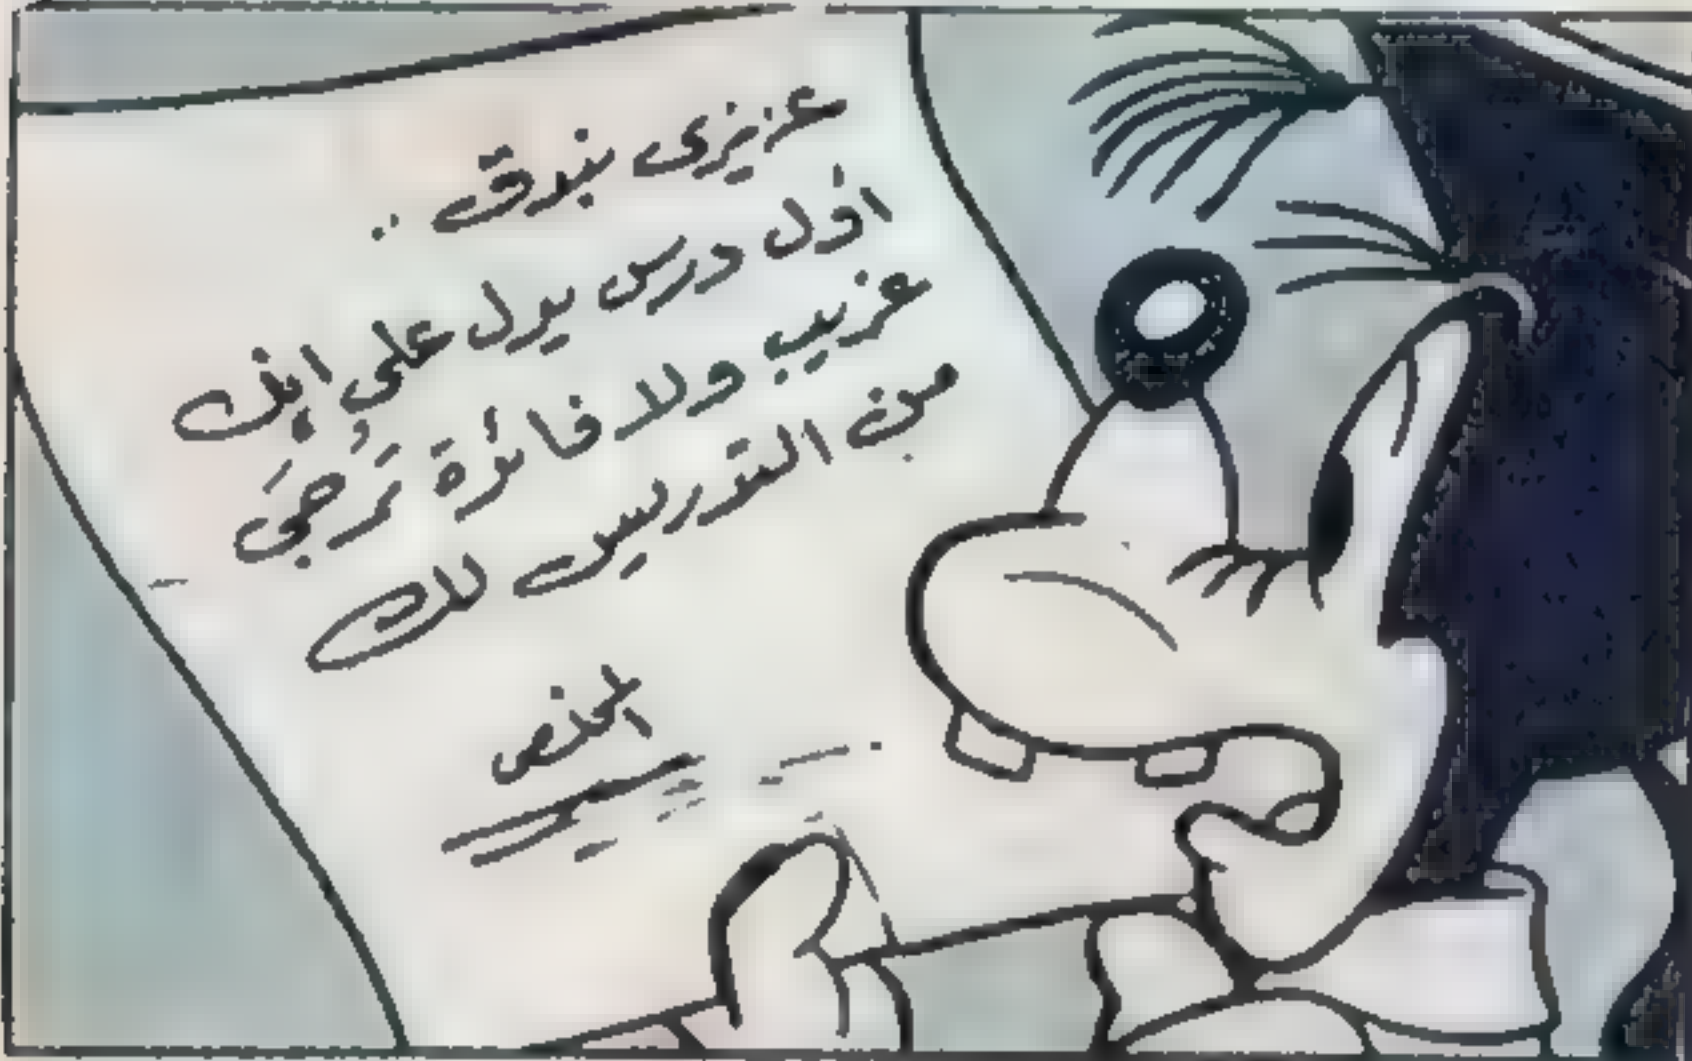 عزيزى بندق ..
اول درس يدل على انك
غريب ولا فائدة تُرجَى
من التدريس لك
المخلص